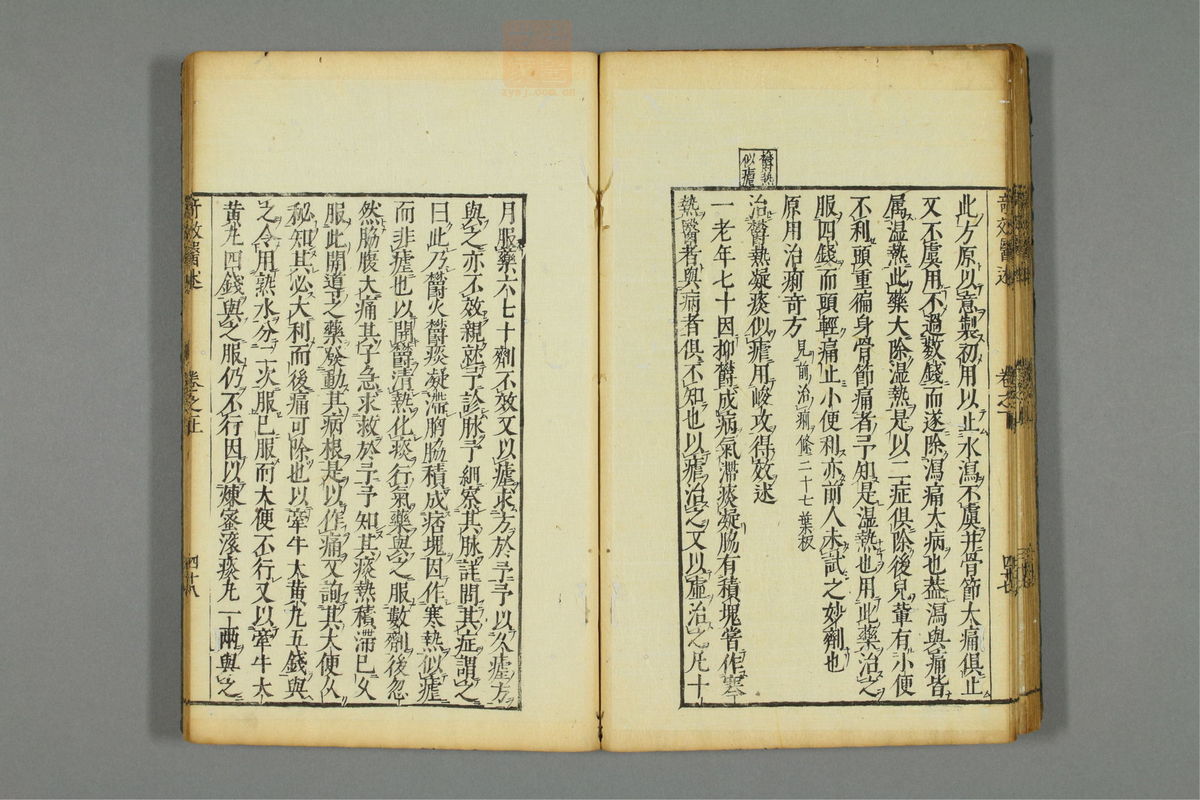 竒效醫述 卷之下 四十七
此方原以意製初用以止水瀉不虞并骨節大痛俱止
又不虞用不過數錢而遂除瀉痛大病也葢瀉與痛皆
属湿熱此藥大除湿熱是以二症俱除後兒輩有小便
不利頭重徧身骨節痛者予知是湿熱也用此藥治之
服四錢而頭輕痛止小便利亦前人未試之妙劑也
原用治痢竒方 見前治痢條二十七葉板
欝熱
似瘧
治欝熱凝痰似瘧用峻攻得效述
一老年七十因抑欝成病氣滯痰凝脇有積塊甞作寒
熱醫者與病者俱不知也以瘧治之又以虛治之凡十
月服藥六七十劑不效又以瘧求方於予予以久瘧方
與之亦不效親就予診脉予細察其脉詳問其症謂之
曰此乃欝火欝痰凝滯胸脇積成痞塊因作寒熱似瘧
而非瘧也以開欝清熱化痰行氣藥與之服數劑後忽
然脇腹大痛其子急求救於予予知其痰熱積滯已久
服此開導之藥發動其病根是以作痛又詢其大便久
秘知其必大利而後痛可除也以牽牛大黄丸五錢與
之令用熱水分二次服已服而大便不行又以牽牛大
黄丸四錢與之服仍不行因以煉蜜滚痰丸一兩與之
竒效醫述 卷之下 四十八
zysj.com.cn